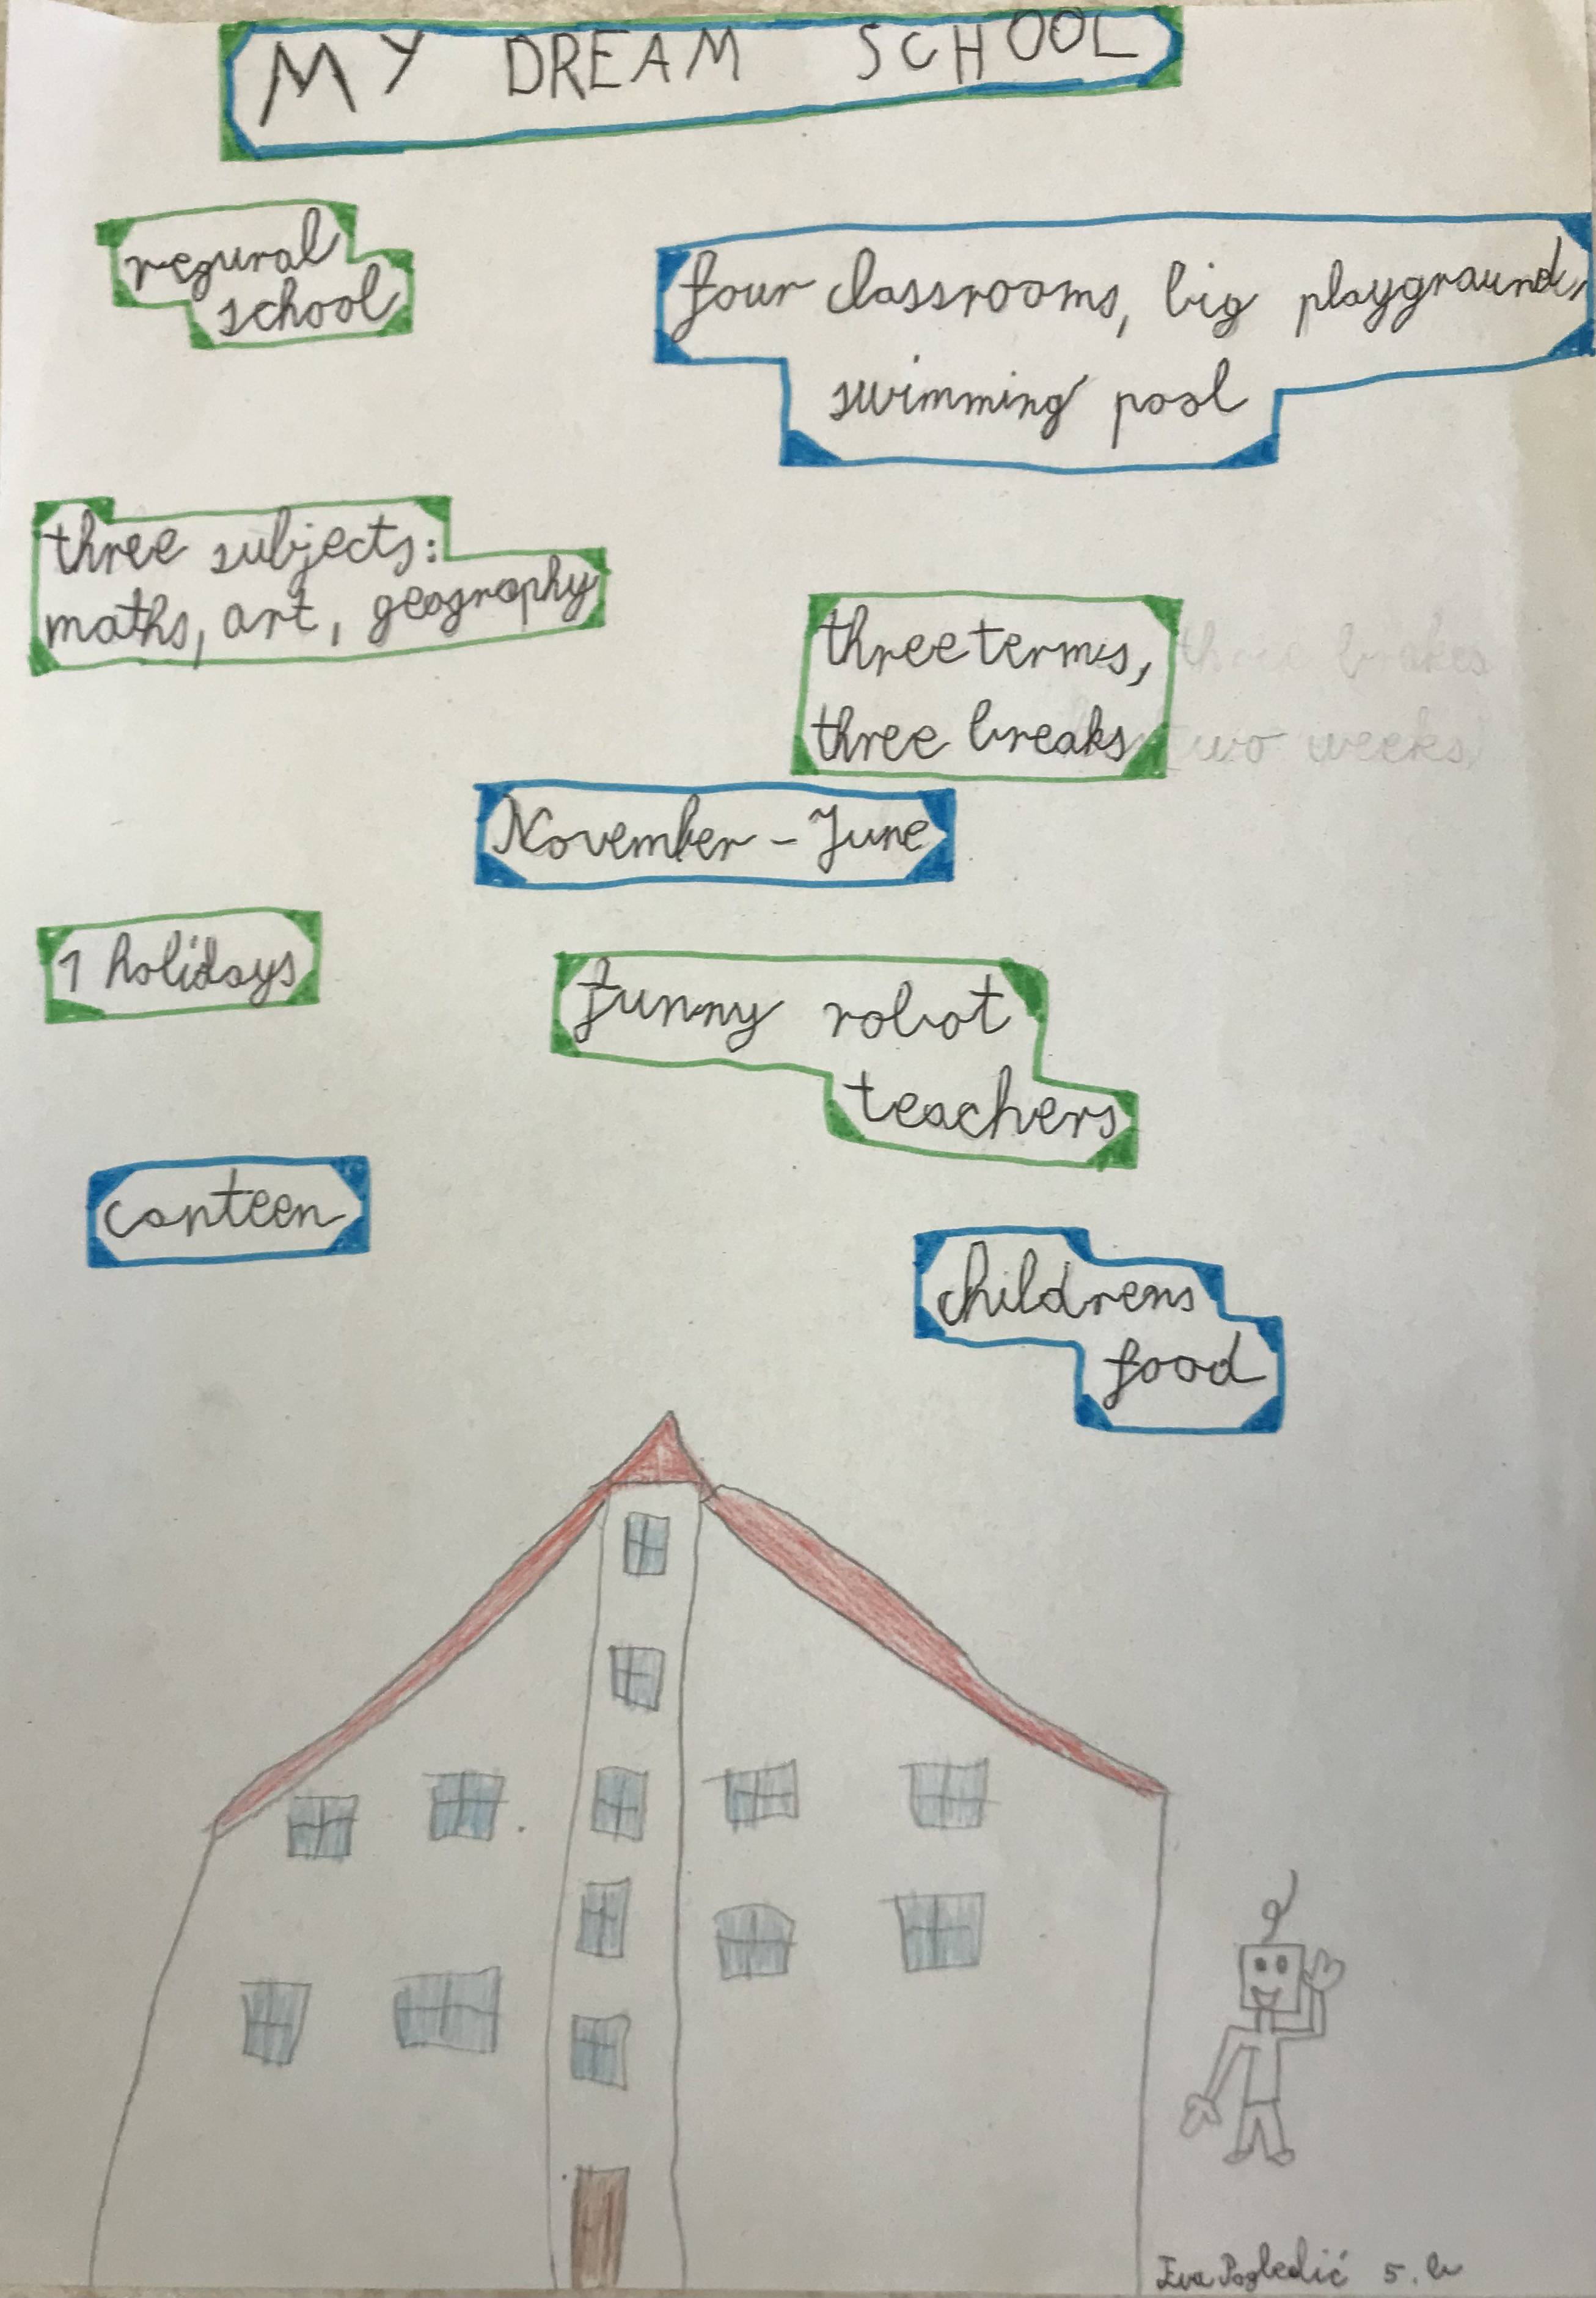 MY DREAM SCHOOL
regural
school
four classrooms, big playgraund,
swimming pool
three subjects:
maths, art, geography
three terms,
three breaks
three brakes
two weeks
November - June
1 holidays
funny robot
teachers
canteen
childrens
food
Eva Pogledić 5. b